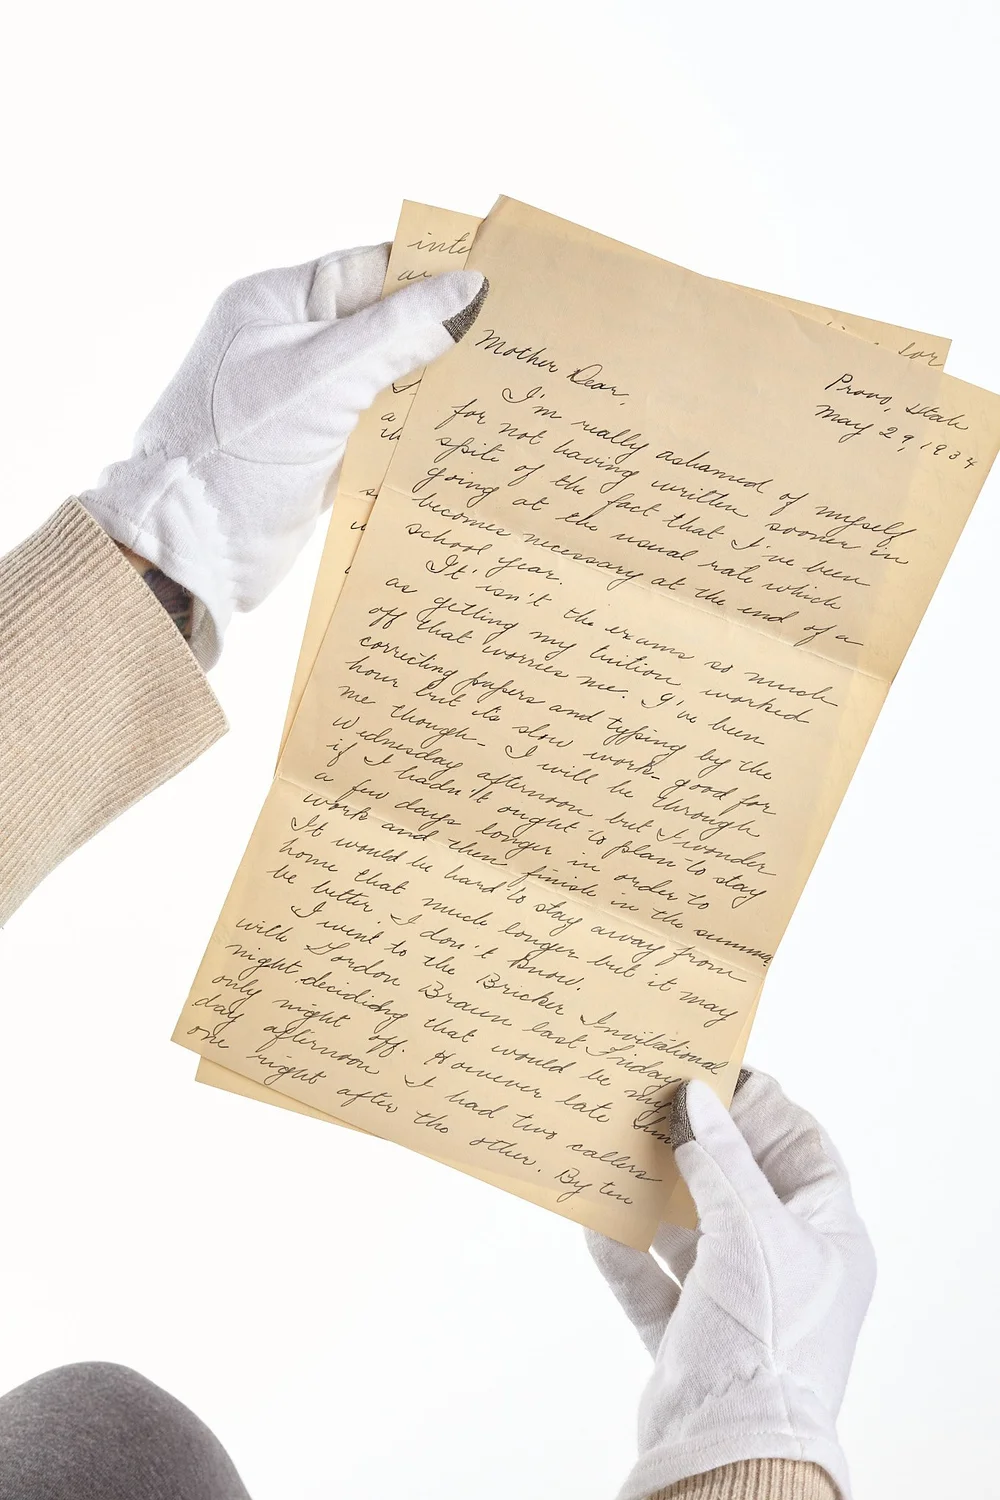 Provo, Utah
May 29, 1934
Mother Dear,
I'm really ashamed of myself
for not having written sooner in
spite of the fact that I've been
going at the usual rate which
becomes necessary at the end of a
school year.
It isn't the exams so much
as getting my tuition worked
off that worries me. I've been
correcting papers and typing by the
hour but it's slow work - good for
me though - I will be through
Wednesday afternoon but I wonder
if I hadn't ought to plan to stay
a few days longer in order to
work and then finish in the summer.
It would be hard to stay away from
home that much longer but it may
be better. I don't know.
I went to the Bricker Invitational
with Gordon Braun last Friday
night decididng that would be my
only night off. However late Sun
day afternoon I had two callers
one right after the other. By ten
inte
sor